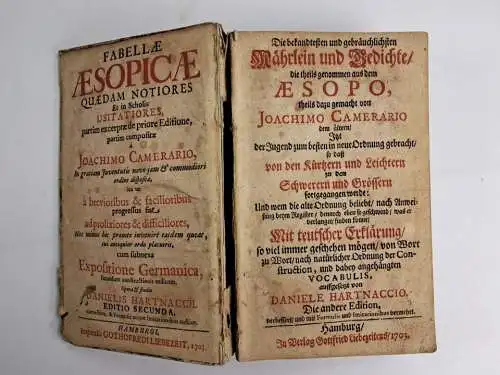 FABELLÆ
ÆSOPICÆ
QUÆDAM NOTIORES
Et in Scholis
USITATIORES,
partim excerptæ de priore Editione,
partim compositæ
à
JOACHIMO CAMERARIO,
In gratiam Juventutis novo jam & commodiori
ordine dispositæ,
ita ut
à brevioribus & facilioribus
progressus fiat
ad prolixiores & difficiliores,
Nec minus hic promte invenire easdem queat,
cui antiquior ordo placuerit,
cum subnexa
Expositione Germanica,
secundum constructionis ordinem,
Opera & studio
DANIELIS HARTNACCII.
EDITIO SECUNDA,
HAMBURGI,
Impensis GOTHOFREDI LIEBEZEIT, 1703.
Die bekandtesten und gebräuchlichsten
Mährlein und Gedichte/
die theils genommen aus dem
ÆSOPO,
theils dazu gemacht von
JOACHIMO CAMERARIO
dem ältern/
Jtzt
der Jugend zum besten in neue Ordnung gebracht/
so daß
von den Kürtzern und Leichtern
zu den
Schwerern und Grössern
fortgegangen werde:
Und wem die alte Ordnung beliebt/ nach Anwei-
sung derer Register/ dennoch eben so geschwind/ was er
verlanget/ finden könne:
Mit teutscher Erklärung/
so viel immer geschehen mögen/ von Wort
zu Wort/ nach natürlicher Ordnung der Con-
struction, und dabey angehängten
VOCABULIS,
auffgesetzt von
DANIELE HARTNACCIO.
Die andere Edition,
verbessert/ und mit Formulis und Imitationibus vermehret.
Hamburg/
Jn Verlag Gottfried Liebezeit/ 1703.